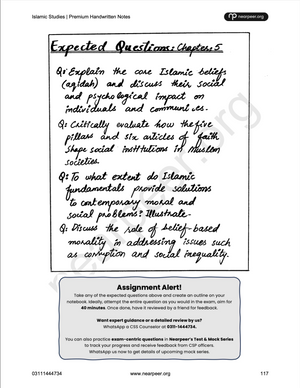 Islamic Studies | Premium Handwritten Notes
nearpeer.org
Expected Questions: Chapter: 5
Q: Explain the core Islamic beliefs
(aqidah) and discuss their social
and psychological impact on
individuals and communities.
Q: Critically evaluate how the five
pillars and six articles of faith
shape social institutions in Muslim
societies.
Q: To what extent do Islamic
fundamentals provide solutions
to contemporary moral and
social problems? Illustrate.
Q: Discuss the role of belief-based
morality in addressing issues such
as corruption and social inequality.
nearpeer.org
Assignment Alert!
Take any of the expected questions above and create an outline on your
notebook. Ideally, attempt the entire question as you would in the exam, aim for
40 minutes. Once done, have it reviewed by a friend for feedback.
Want expert guidance or a detailed review by us?
WhatsApp a CSS Counselor at 0311-1444734.
You can also practice exam-centric questions in Nearpeer's Test & Mock Series
to track your progress and receive feedback from CSP officers.
WhatsApp us now to get details of upcoming mock series.
03111444734
www.nearpeer.org
117